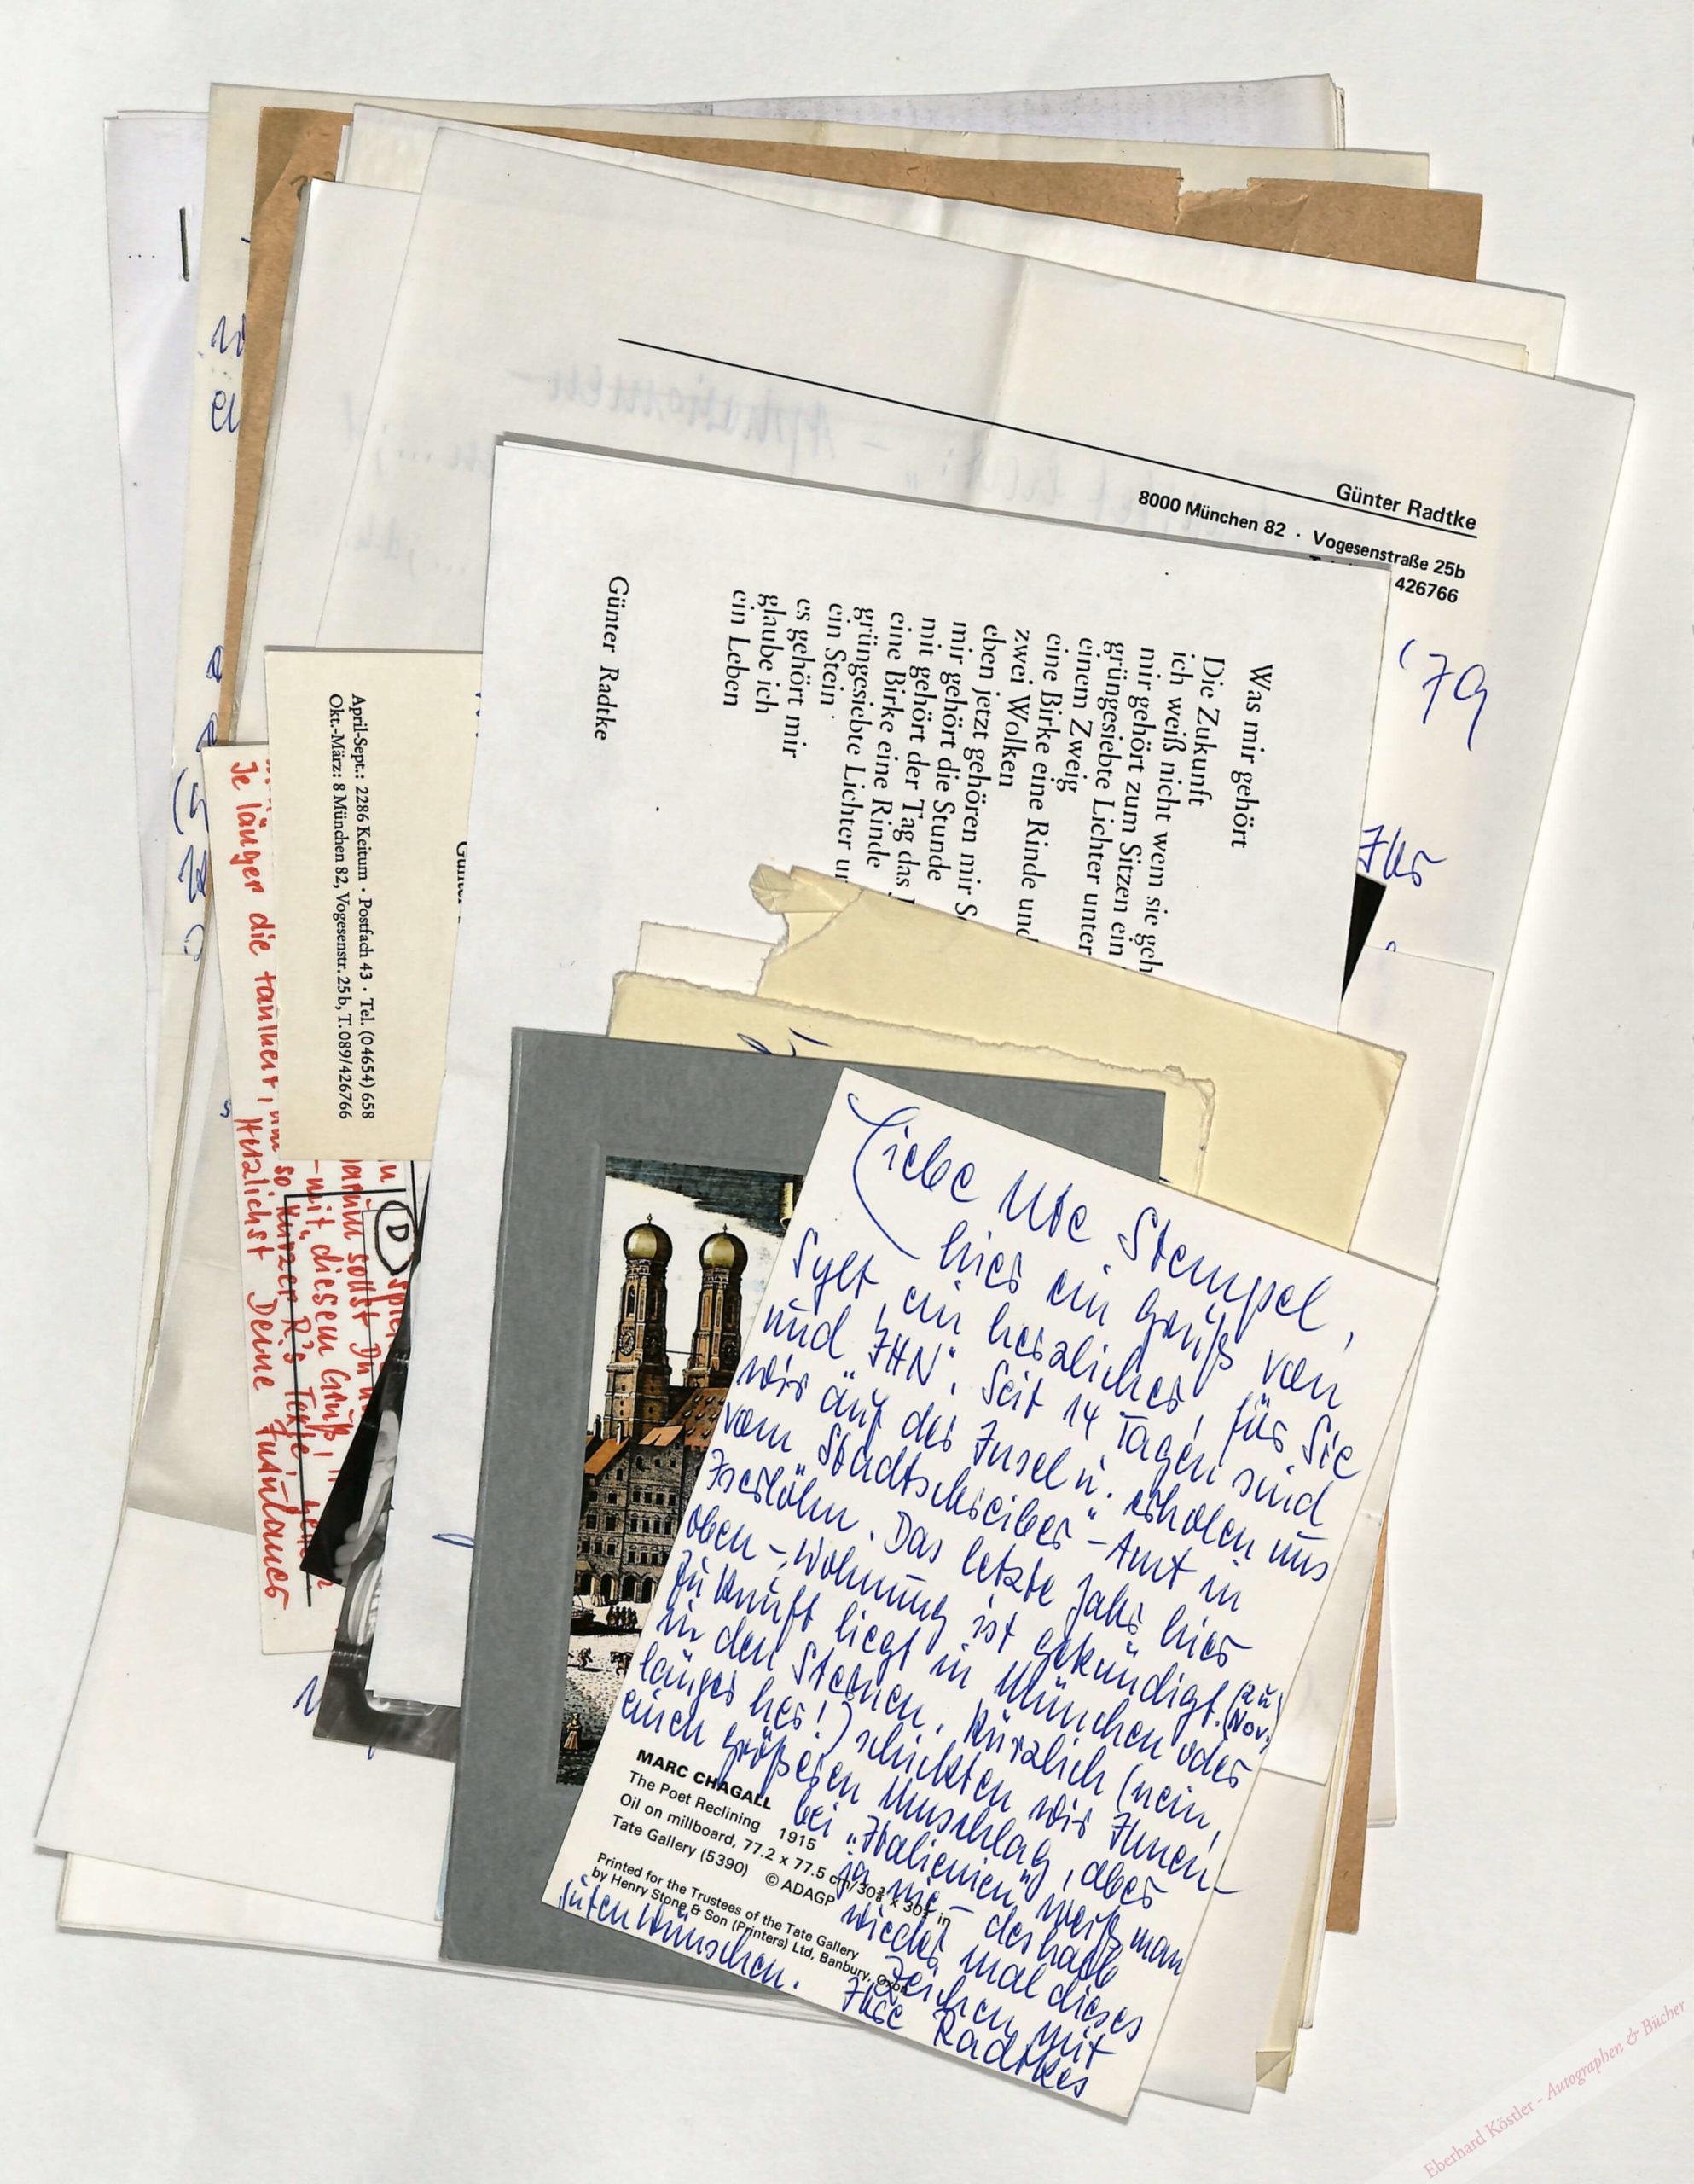 Günter Radtke
8000 München 82 · Vogesenstraße 25b
426766
'79
Ihr
Was mir gehört
Die Zukunft
ich weiß nicht wem sie geh
mir gehört zum Sitzen ein
grüngesiebte Lichter unter
einem Zweig
eine Birke eine Rinde und
zwei Wolken
eben jetzt gehören mir S
mir gehört die Stunde
mit gehört der Tag das
eine Birke eine Rinde
grüngesiebte Lichter un
ein Stein
es gehört mir
glaube ich
ein Leben
Günter Radtke
April-Sept.: 2286 Keitum · Postfach 43 · Tel. (04654) 658
Okt.-März: 8 München 82, Vogesenstr. 25b, T. 089/426766
D
sollst Du
mit diesem Gruß,
so kürzer R's Texte
Je länger die
Herzlichst Deine
Liebe Ute Stempel,
hier ein Gruß von
Sylt, ein herzlicher, für Sie
und "IHN". Seit 14 Tagen sind
wir auf der Insel u. erholen uns
vom "Stadtschreiber"-Amt in
Iserlohn. Das letzte Jahr hier
oben -, Wohnung ist gekündigt. (zu Nov.)
Zukunft liegt in München oder
in den Sternen. Kürzlich (nein,
länger her!) schickten wir Ihnen
einen größeren Umschlag, aber
bei "Italienien" weiß man
ja nie - deshalb
wieder mal dieses
Zeichen mit
guten Wünschen.
Ihre Radtkes
MARC CHAGALL
The Poet Reclining 1915
Oil on millboard, 77.2 x 77.5 cm/30⅜ x 30½ in
Tate Gallery (5390) © ADAGP
Printed for the Trustees of the Tate Gallery
by Henry Stone & Son (Printers) Ltd, Banbury, Oxon
Eberhard Köstler - Autographen & Bücher